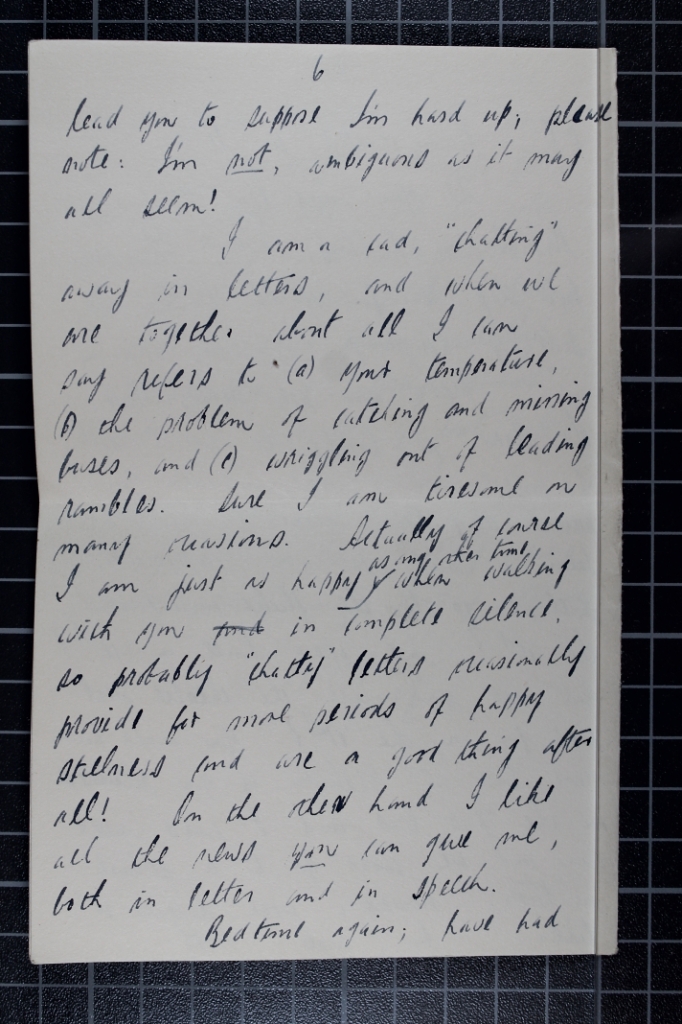 6
lead you to suppose I'm hard up; please
note: I'm not, ambiguous as it may
all seem!
I am a cad, "chatting"
away in letters, and when we
are together about all I can
say refers to (a) your temperature,
(b) the problem of catching and missing
buses, and (c) wriggling out of leading
rambles. Sure I am tiresome on
many occasions. Actually of course
as any other time
I am just as happy when walking
with you and in complete silence,
so probably "chatty" letters occasionally
provide for more periods of happy
stillness and are a good thing after
all! On the other hand I like
all the news you can give me,
both in letter and in speech.
Bedtime again; have had